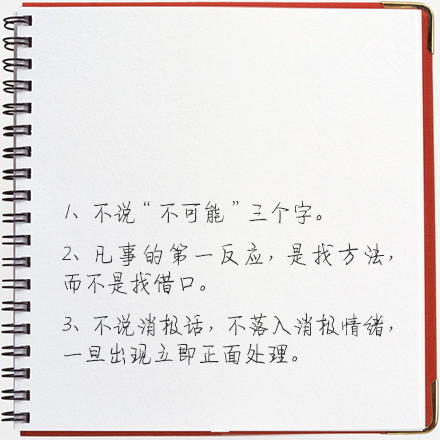 1、不说“不可能”三个字。
2、凡事的第一反应，是找方法，
而不是找借口。
3、不说消极话，不落入消极情绪，
一旦出现立即正面处理。